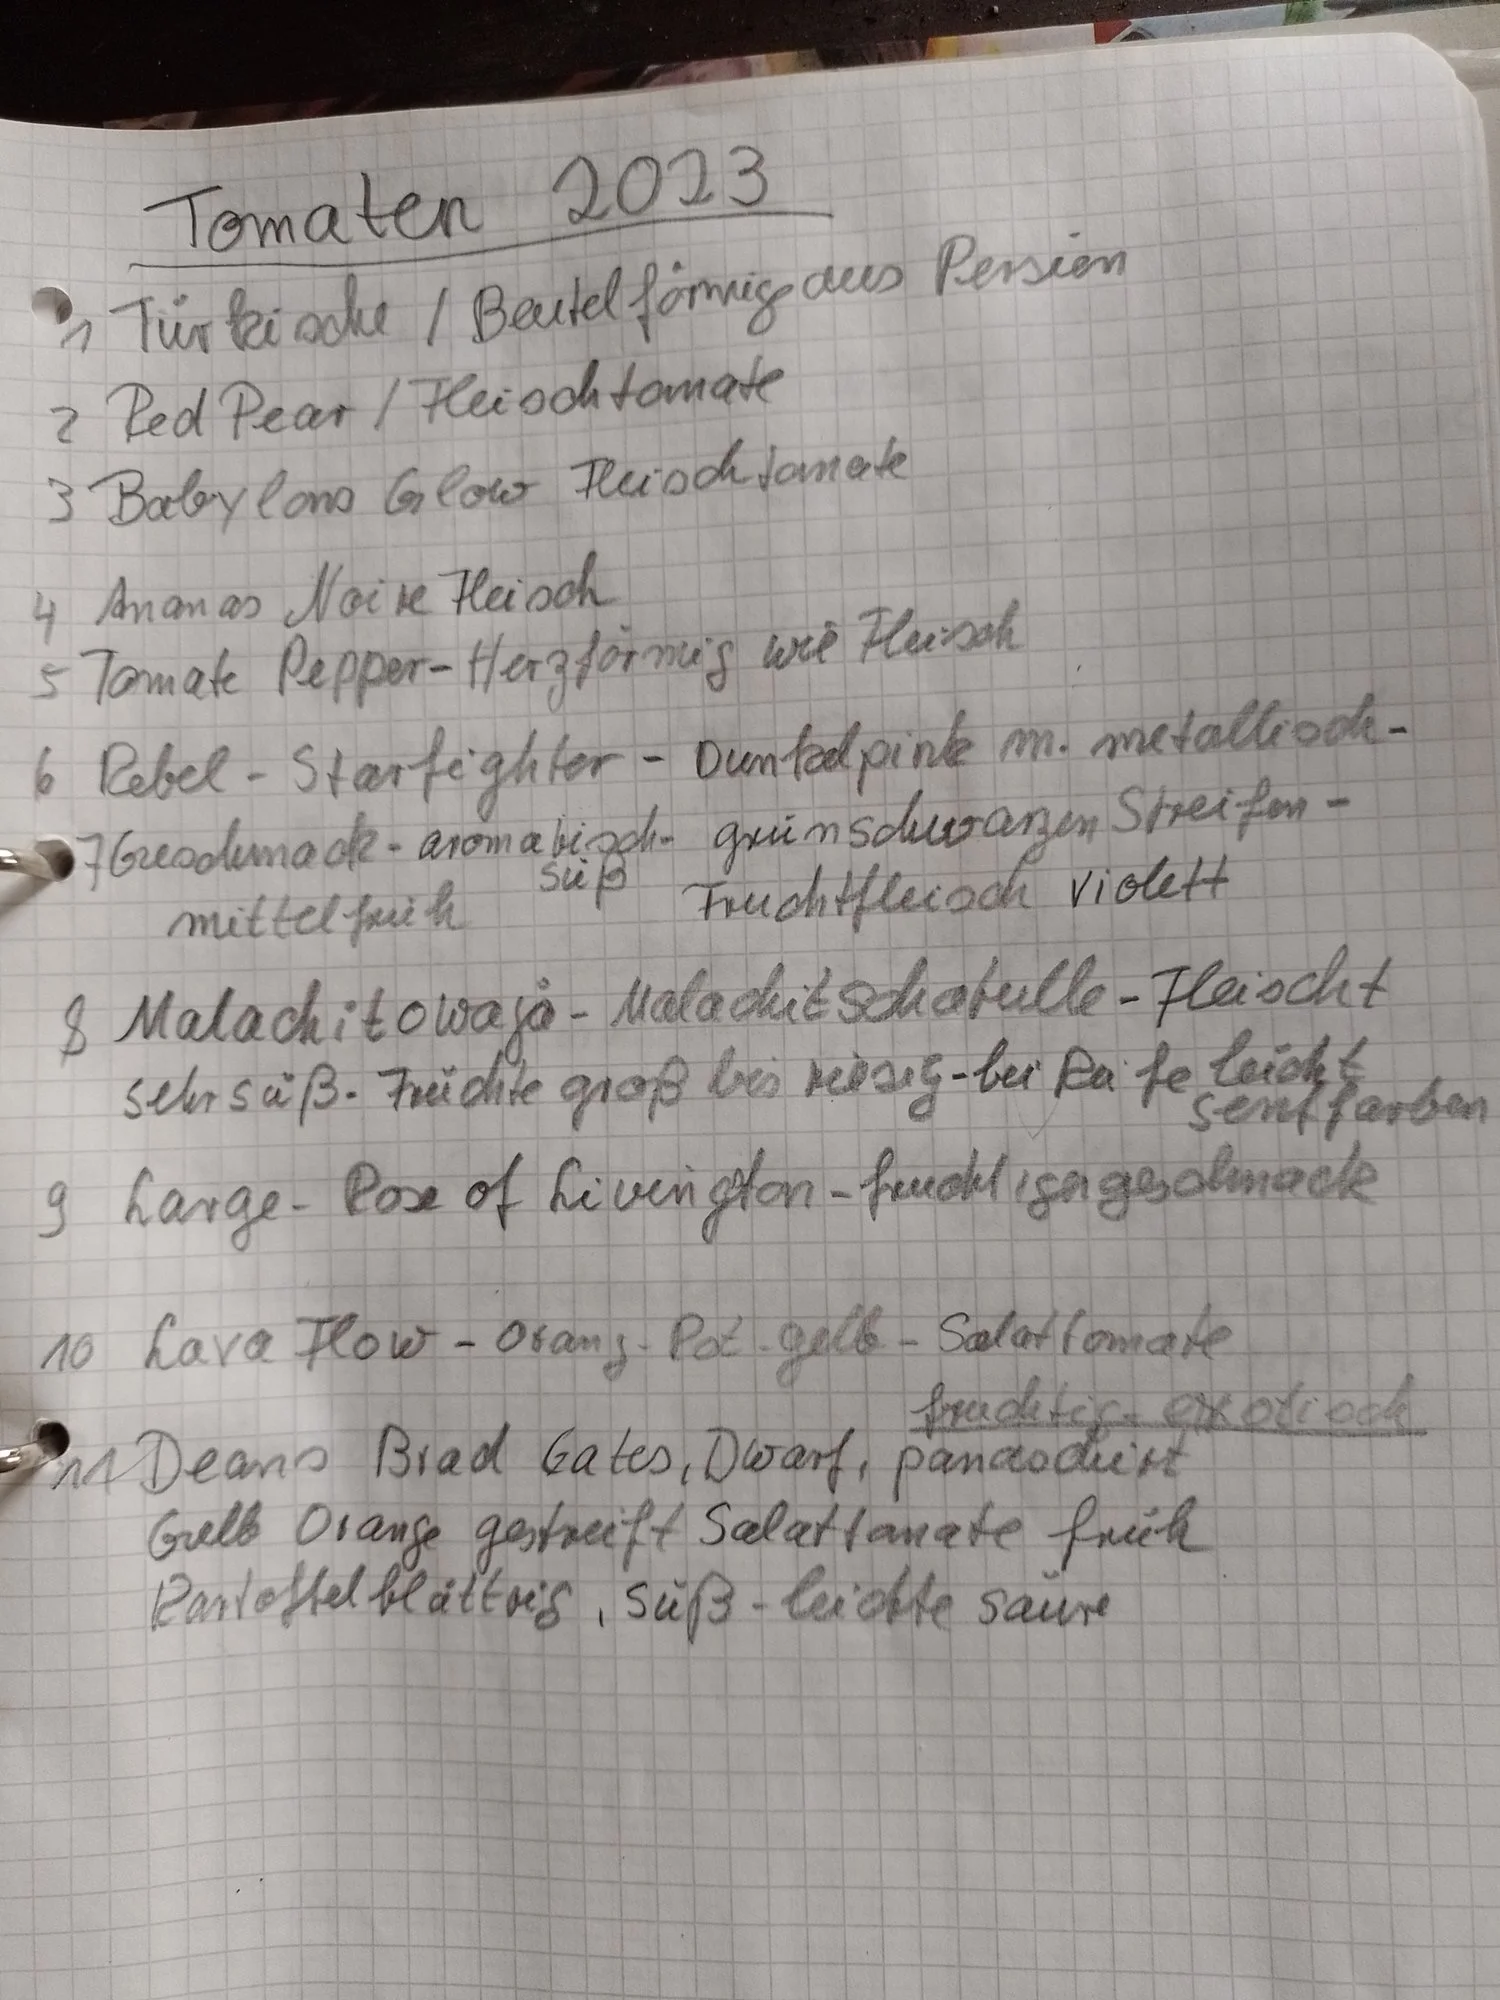 Tomaten 2023
1 Türkische / Beutelförmig aus Persien
2 Red Pear / Fleischtomate
3 Babylons Glow Fleischtomate
4 Ananas Noire Fleisch
5 Tomate Pepper - Herzförmig wie Fleisch
6 Rebel - Starfighter - Dunkelpink m. metallisch-
7 Geschmack - aromatisch- grünschwarzen Streifen -
süß
mittelfrüh Fruchtfleisch violett
8 Malachitowaja - Malachitschatulle - Fleischt
sehr süß - Früchte groß bis riesig - bei Reife leicht
senffarben
9 Large - Rose of Livington - fruchtigergeschmack
10 Lava Flow - Orang - Rot - gelb - Salattomate
fruchtig - exotisch
11 Deans Brad Gates, Dwarf, panaschiert
Gelb Orange gestreift Salattomate früh
Kartoffelblättrig, süß - leichte säure